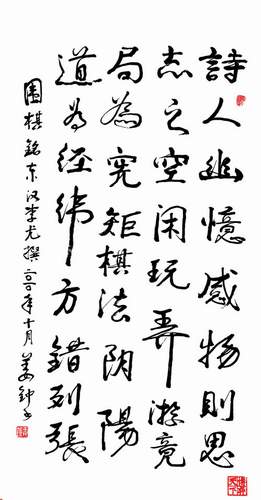 詩人幽憶感物則思
志之空闲玩弄游竟
局為宪矩棋法阴陽
道为经纬方錯列張
围棋銘东汉李尤撰年十月姜